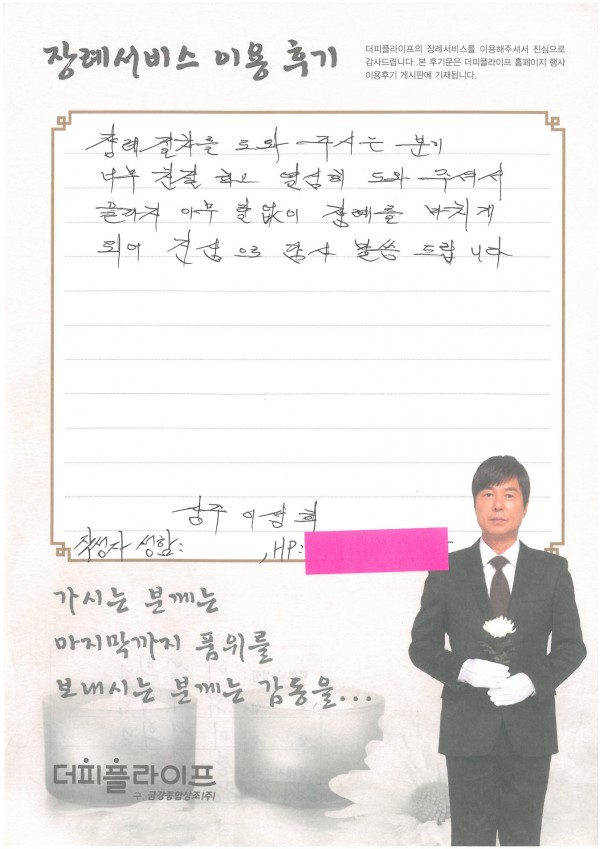 장례서비스 이용 후기
더피플라이프의 장례서비스를 이용해주셔서 진심으로
감사드립니다. 본 후기문은 더피플라이프 홈페이지 행사
이용후기 게시판에 기재됩니다.
장례 절차를 도와 주시는 분이
너무 친절 하고 열심히 도와 주셔서
끝까지 아무 탈없이 장례를 마치게
되어 진심 으로 감사 말씀 드립 니다
상주 이상희
작성자 성함: , HP:
가시는 분께는
마지막까지 품위를
보내시는 분께는 감동을...
더피플라이프
구. 금강종합상조(주)